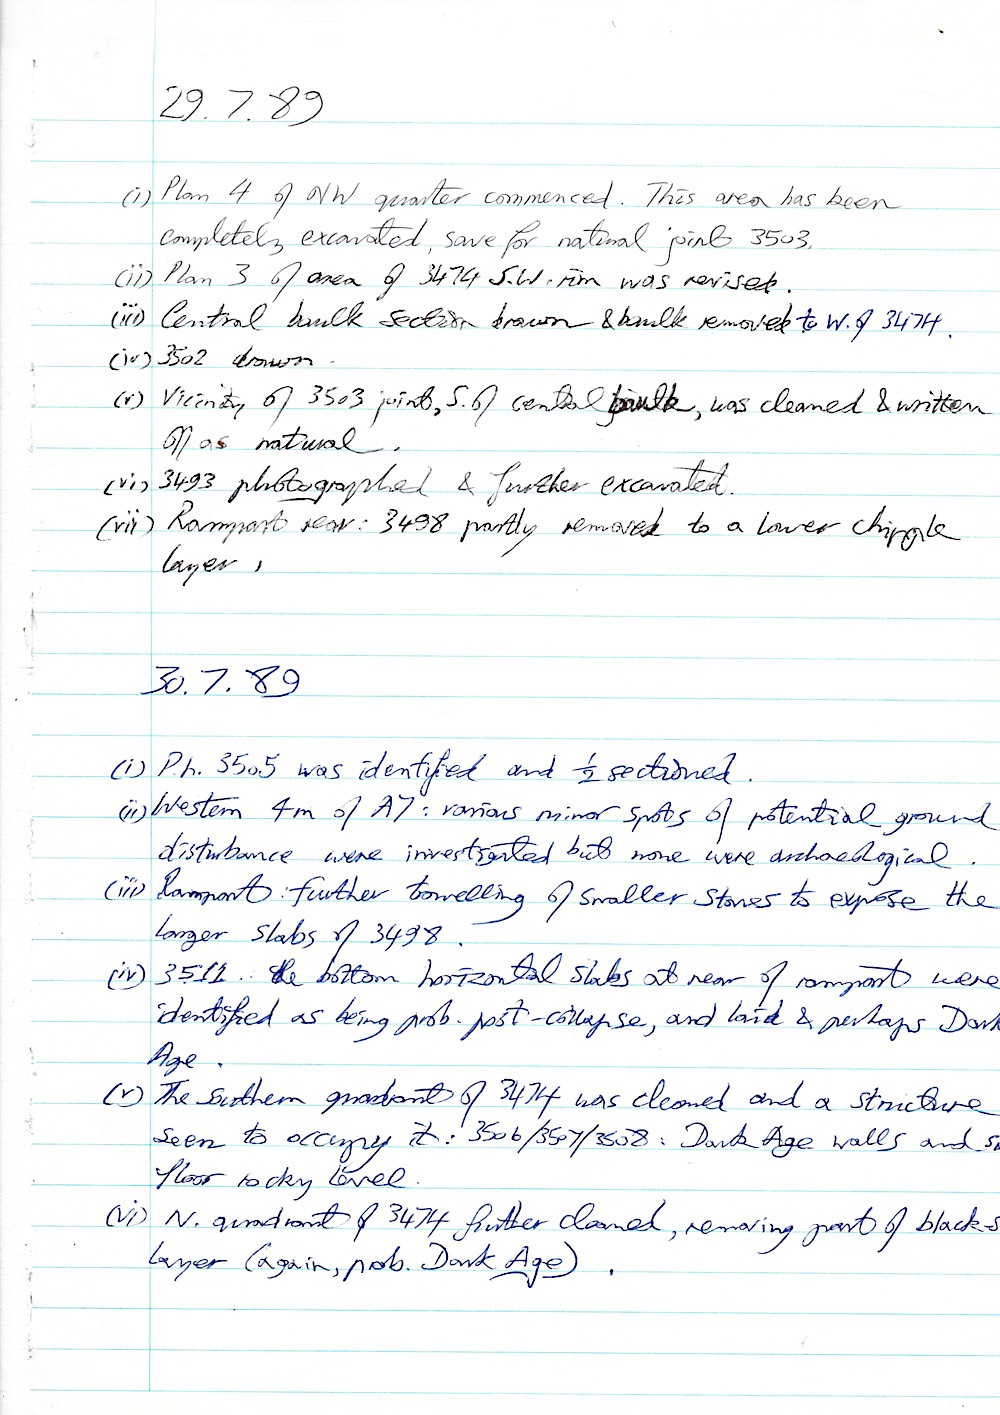 29.7.89
(i) Plan 4 of NW quarter commenced. This area has been
completely excavated, save for natural joint 3503.
(ii) Plan 3 of area of 3474 S.W. rim was revised.
(iii) Central baulk section drawn & baulk removed to W. of 3474.
(iv) 3502 drawn.
(v) Vicinity of 3503 joint, S. of central baulk, was cleaned & written
off as natural.
(vi) 3493 photographed & further excavated.
(vii) Rampart rear: 3498 partly removed to a lower chipple
layer.
30.7.89
(i) P.h. 3505 was identified and ½ sectioned.
(ii) Western 4m of A7: various minor spots of potential ground
disturbance were investigated but none were archaeological.
(iii) Rampart: further trowelling of smaller stones to expose the
larger slabs of 3498.
(iv) 3511: the bottom horizontal slabs at rear of rampart were
identified as being prob. post-collapse, and laid & perhaps Dark
Age.
(v) The southern quadrant of 3474 was cleaned and a structure
seen to occupy it: 3506/3507/3508: Dark Age walls and
floor rocky level.
(vi) N. quadrant of 3474 further cleaned, removing part of black-s
layer (again, prob. Dark Age).